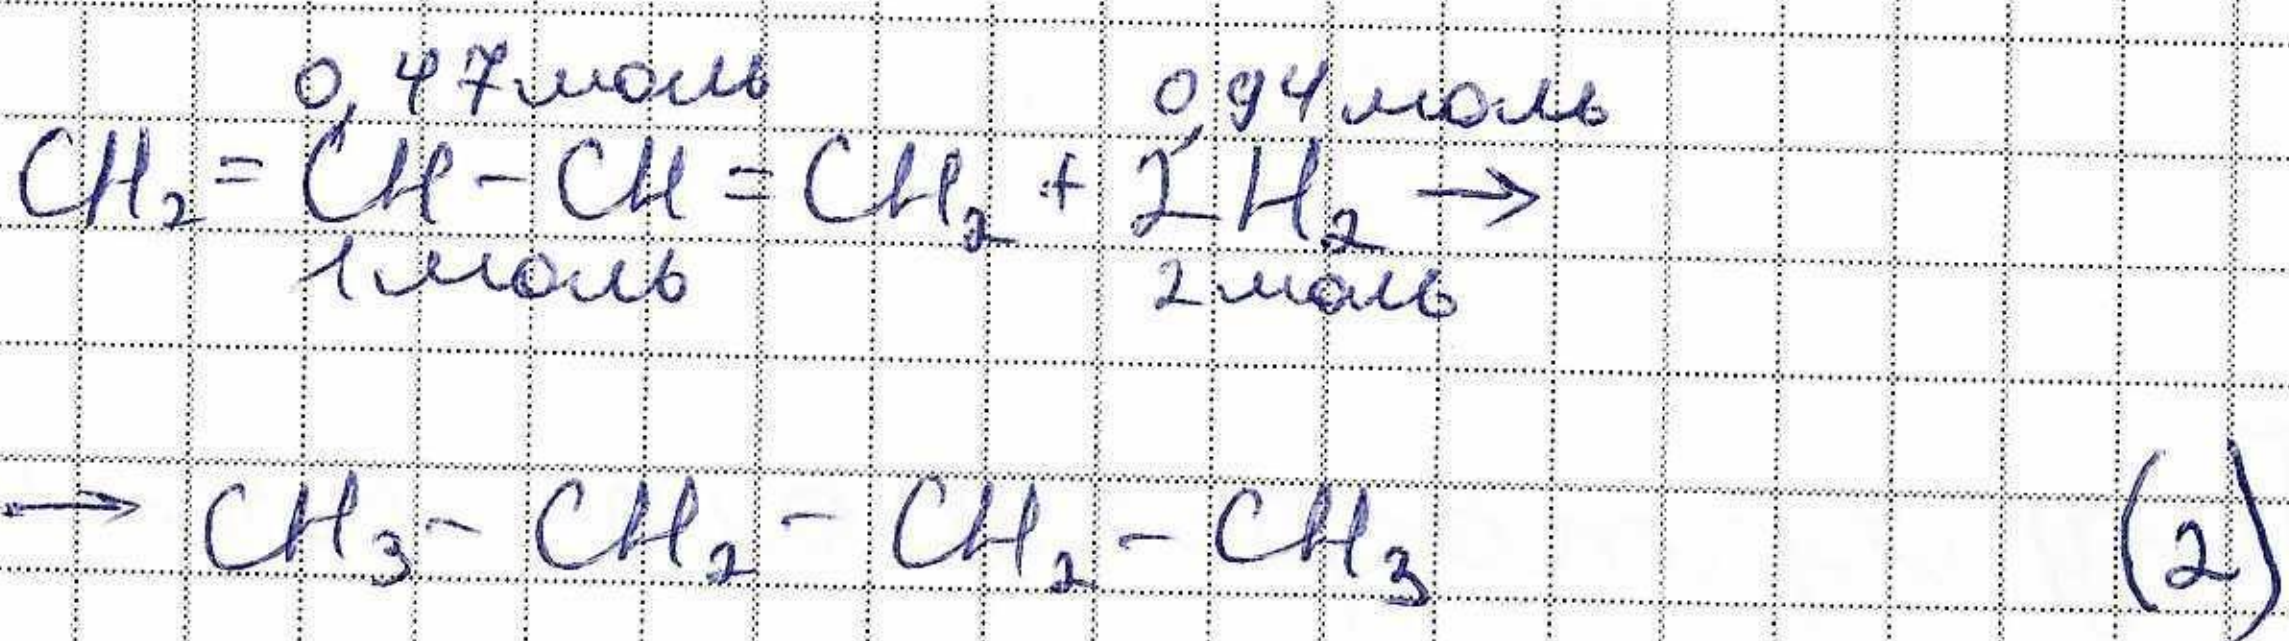 0,47 моль 0,94 моль
CH₂ = CH - CH = CH₂ + 2H₂ →
1 моль 2 моль
→ CH₃ - CH₂ - CH₂ - CH₃ (2)